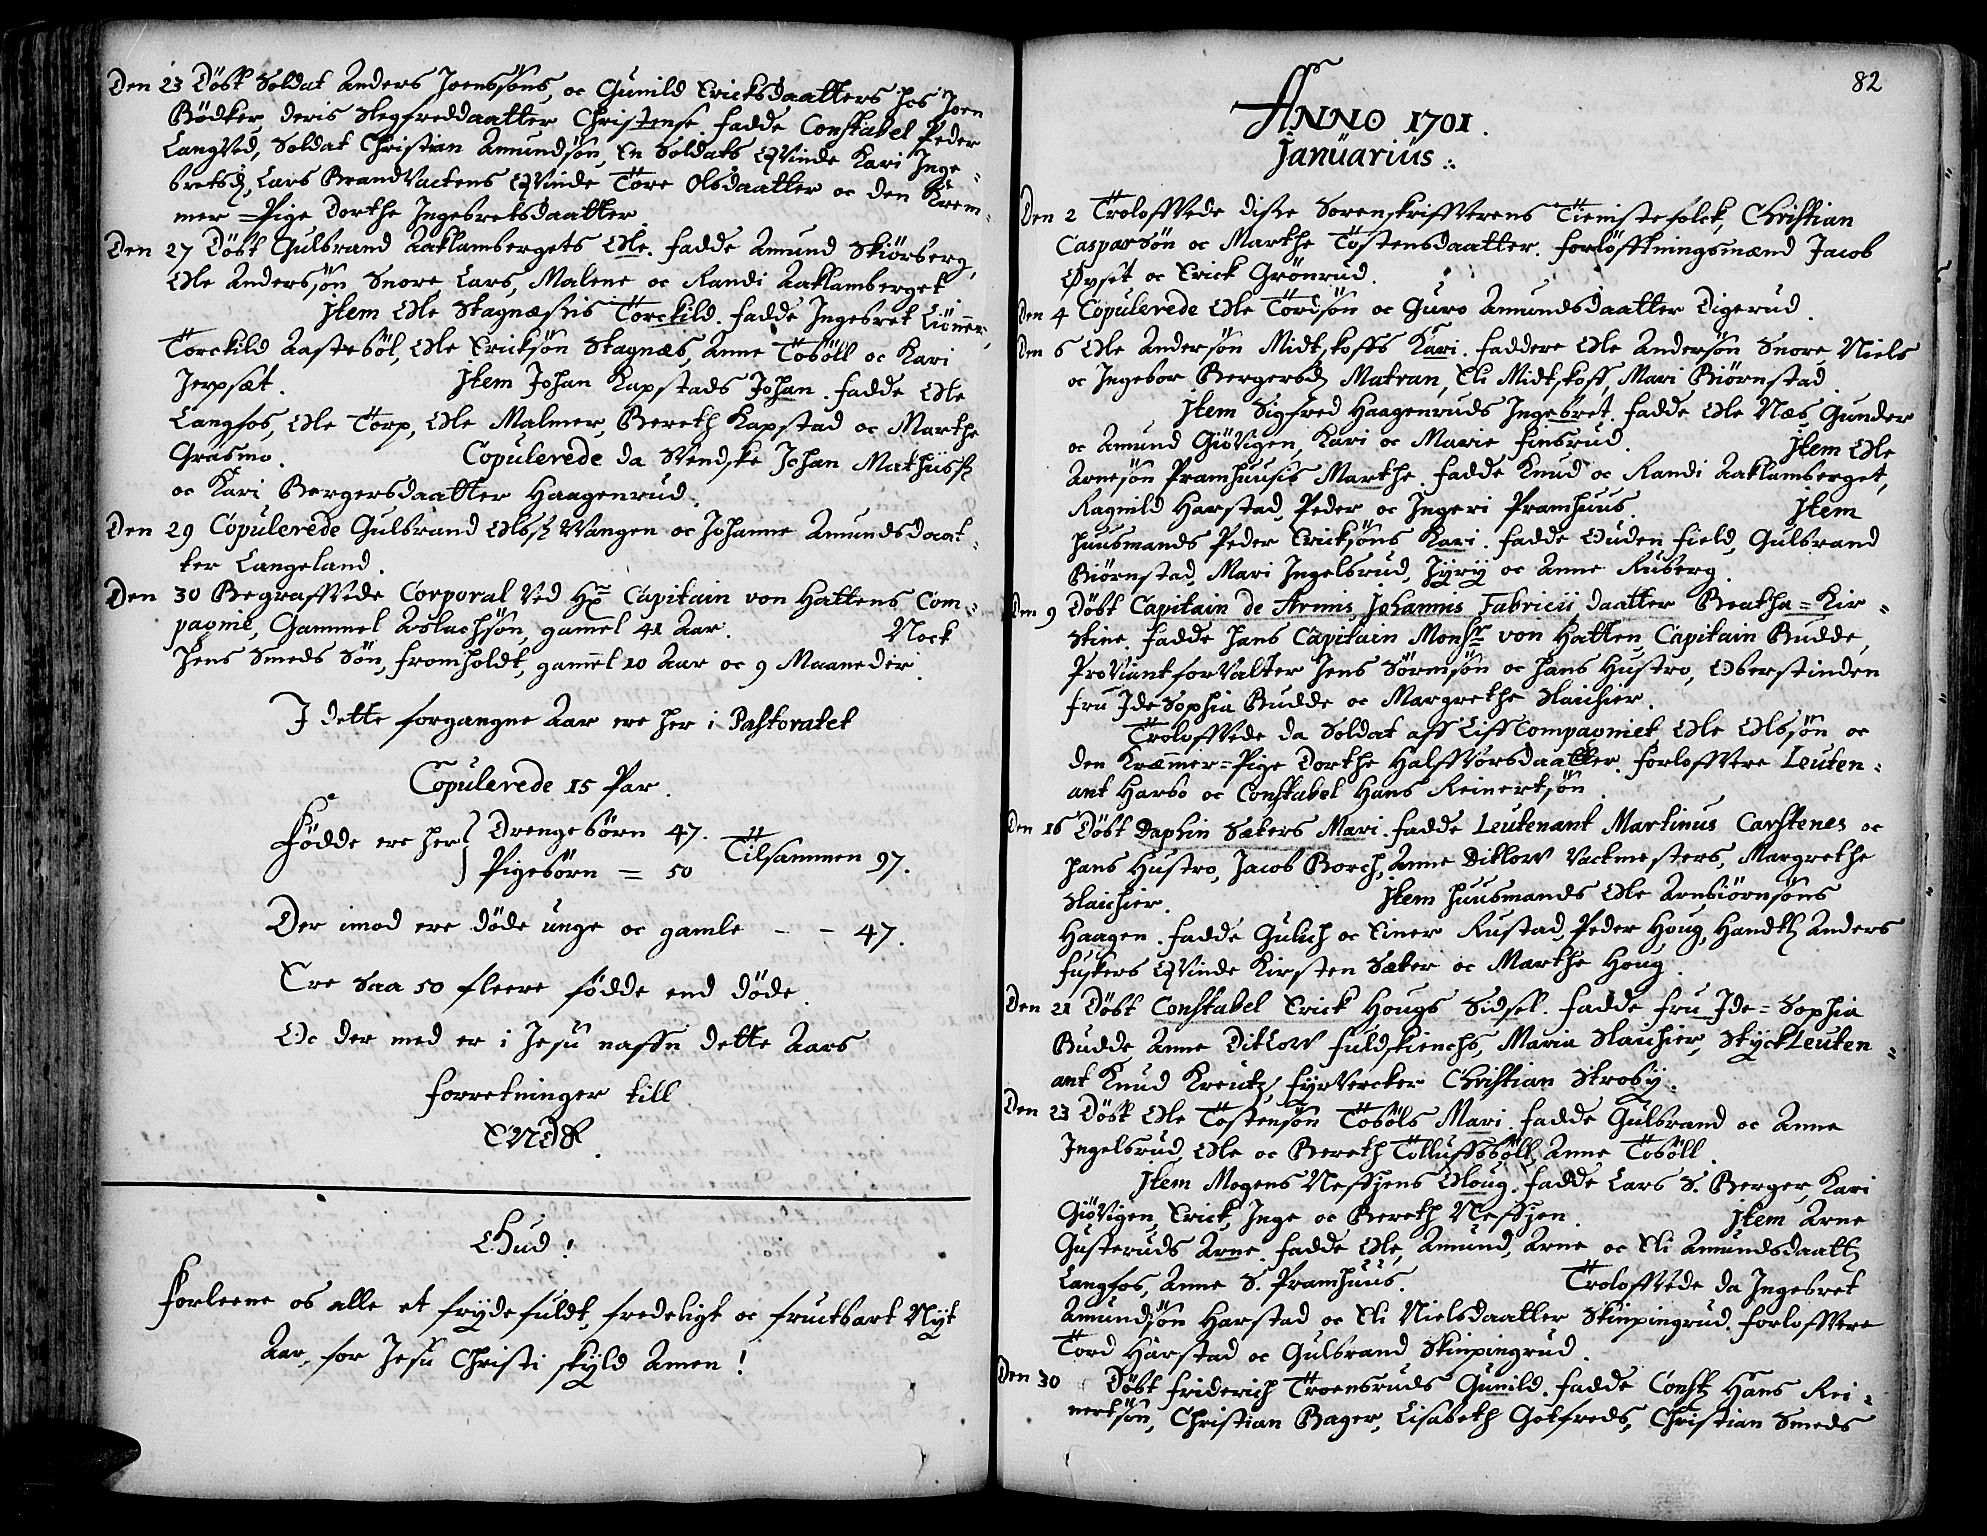 Den 23 Döbt Soldat Anders Joenssöns, oc Gunild Ericksdaatters hos Joen
Bödker deris Slegfreddaatter Christense. Fadde Constabel Peder
Langved, Soldat Christian Amundsön, En Soldats Qvinde Kari Inge-
bretsd, Lars Brandvactens Qvinde Töre Olsdaatter oc den Krem-
mer-Pige Dorthe Ingebretsdaatter.
Den 27 Döbt Gulbrand Aaklambergets Ole. Fadde Amund Skiörberg,
Ole Anderssön Snore, Lars, Malene oc Randi Aaklamberget
Item Ole Skagnæssis Törckild. Fadde Ingebret
Torckild Aasteböl, Ole Ericksön Skagnæs, Anne Töböll oc Kari
Jerpsæt. Item Johan Kapstads Johan. Fadde Ole
Langfos, Ole Torp, Ole Malmer, Bereth Kapstad oc Marthe
Grasmo. Copulerede da Svendske Johan Mathiiss
oc Kari Bergersdaatter Haagenrud.
Den 29 Copulerede Gulbrand Olss Vangen oc Johanne Amundsdaat-
ter Langeland.
Den 30 Begraffvede Corporal ved Hr Capitain von Hattens Com-
pagnie, Gammel Aslachsön, gamel 41 Aar. Nock
Jens Smeds Sön, Fromholdt, gamel 10 Aar oc 9 Maaneder.
I dette forgangne Aar ere her i Pastoratet
Copulerede 15 Par.
Födde ere her Drengebörn 47. Tilsammen 97.
Pigebörn = 50
Der imod ere döde unge oc gamle - - 47.
Ere saa 50 fleere födde end döde.
Oc der med er i Jesu naffn dette Aars
forretninger till
ENDE.
Gud!
Forleene os alle et frydefuldt, fredeligt oc fructbart Nyt
Aar, for Jesu Christi skyld Amen!
82
ANNO 1701.
Januarius.
Den 2 Troloffvede disse Sorenskriffverens Tienistefolck, Christian
Casparsön oc Marthe Töstensdaatter. Forlöfftningsmænd Jacob
Öyset oc Erick Grönrud.
Den 4 Copulerede Ole Tordsön oc Guro Amundsdaatter Digerud.
Den 6 Ole Andersön Midtskoffs Kari. Faddere Ole Andersön Snore, Niels
oc Ingebor Bergersd Matran, Eli Midtskoff, Mari Biörnstad.
Item Sigfred Haagenruds Ingebret. Fadde Ole Næs Gunder
oc Amund Giövigen, Kari oc Marie Finsrud. Item Ole
Arnesön Pramhuusis Marthe. Fadde Knud oc Randi Aaklamberget,
Ragnild Harstad, Peder oc Ingeri Pramhuus. Item
Huusmands Peder Ericksöns Kari. Fadde Ouden Field, Gulbrand
Biörnstad, Mari Ingelsrud, Jyry oc Anne Ruberg.
Den 9 Döbt Capitain de Armis, Johannis Fabricii daatter Beatha=Kir-
stine. Fadde Hans Capitain Monsr von Hatten, Capitain Budde,
Proviantforvalter Jens Sörensön oc hans Hustro, Oberstinden
Fru Ide Sophia Budde oc Margrethe Slaichier.
Troloffvede da Soldat aff Liff Compagniet Ole Olssön oc
den Kræmmer-Pige Dorthe Halffvorsdaatter. Forloffvere Leuten-
ant Harbo oc Constabel Hans Reinertsön.
Den 16 Döbt Daphin Sækers Mari. Fadde Leutenant Martinus Carstenes oc
hans Hustro, Jacob Borch, Anne Ditlow Vactmesters, Margrethe
Slaichier. Item Huusmands Ole Arnbiörnsöns
Haagen. Fadde Gulich oc Einer Rustad, Peder Houg, Anders
Fuskers Qvinde Kirsten Sæter oc Marthe Houg.
Den 21 Döbt Constabel Erick Hougs Sidsel. Fadde Fru Ide=Sophia
Budde, Anne Ditlow Maria Slaichier, StyckLeuten-
ant Knud Kreutz, Fyrvercker Christian Stroby.
Den 23 Döbt Ole Töstensön Töböls Mari. Fadde Gulbrand oc Anne
Ingelsrud, Ole oc Bereth Tolluffsböll, Anne Töböll.
Item Mogens Neffsjens Oloug. Fadde Lars S. Berger, Kari
Giövigen, Erick, Inge oc Bereth Neffsjen. Item Arne
Gusteruds Arne. Fadde Ole, Amund, Arne oc Eli Amundsdaatt
Langfos, Anne S. Pramhuus. Troloffvede da Ingebret
Amundsön Harstad oc Eli Nielsdaatter Skinpingrud. Forloffvere
Tord Harstad oc Gulbrand Skinpingrud.
Den 30 Döbt Friderich Troensruds Gunild. Fadde Const Hans Rei-
nertsön, Christian Bager, Lisabeth Gotfreds, Christian Smeds